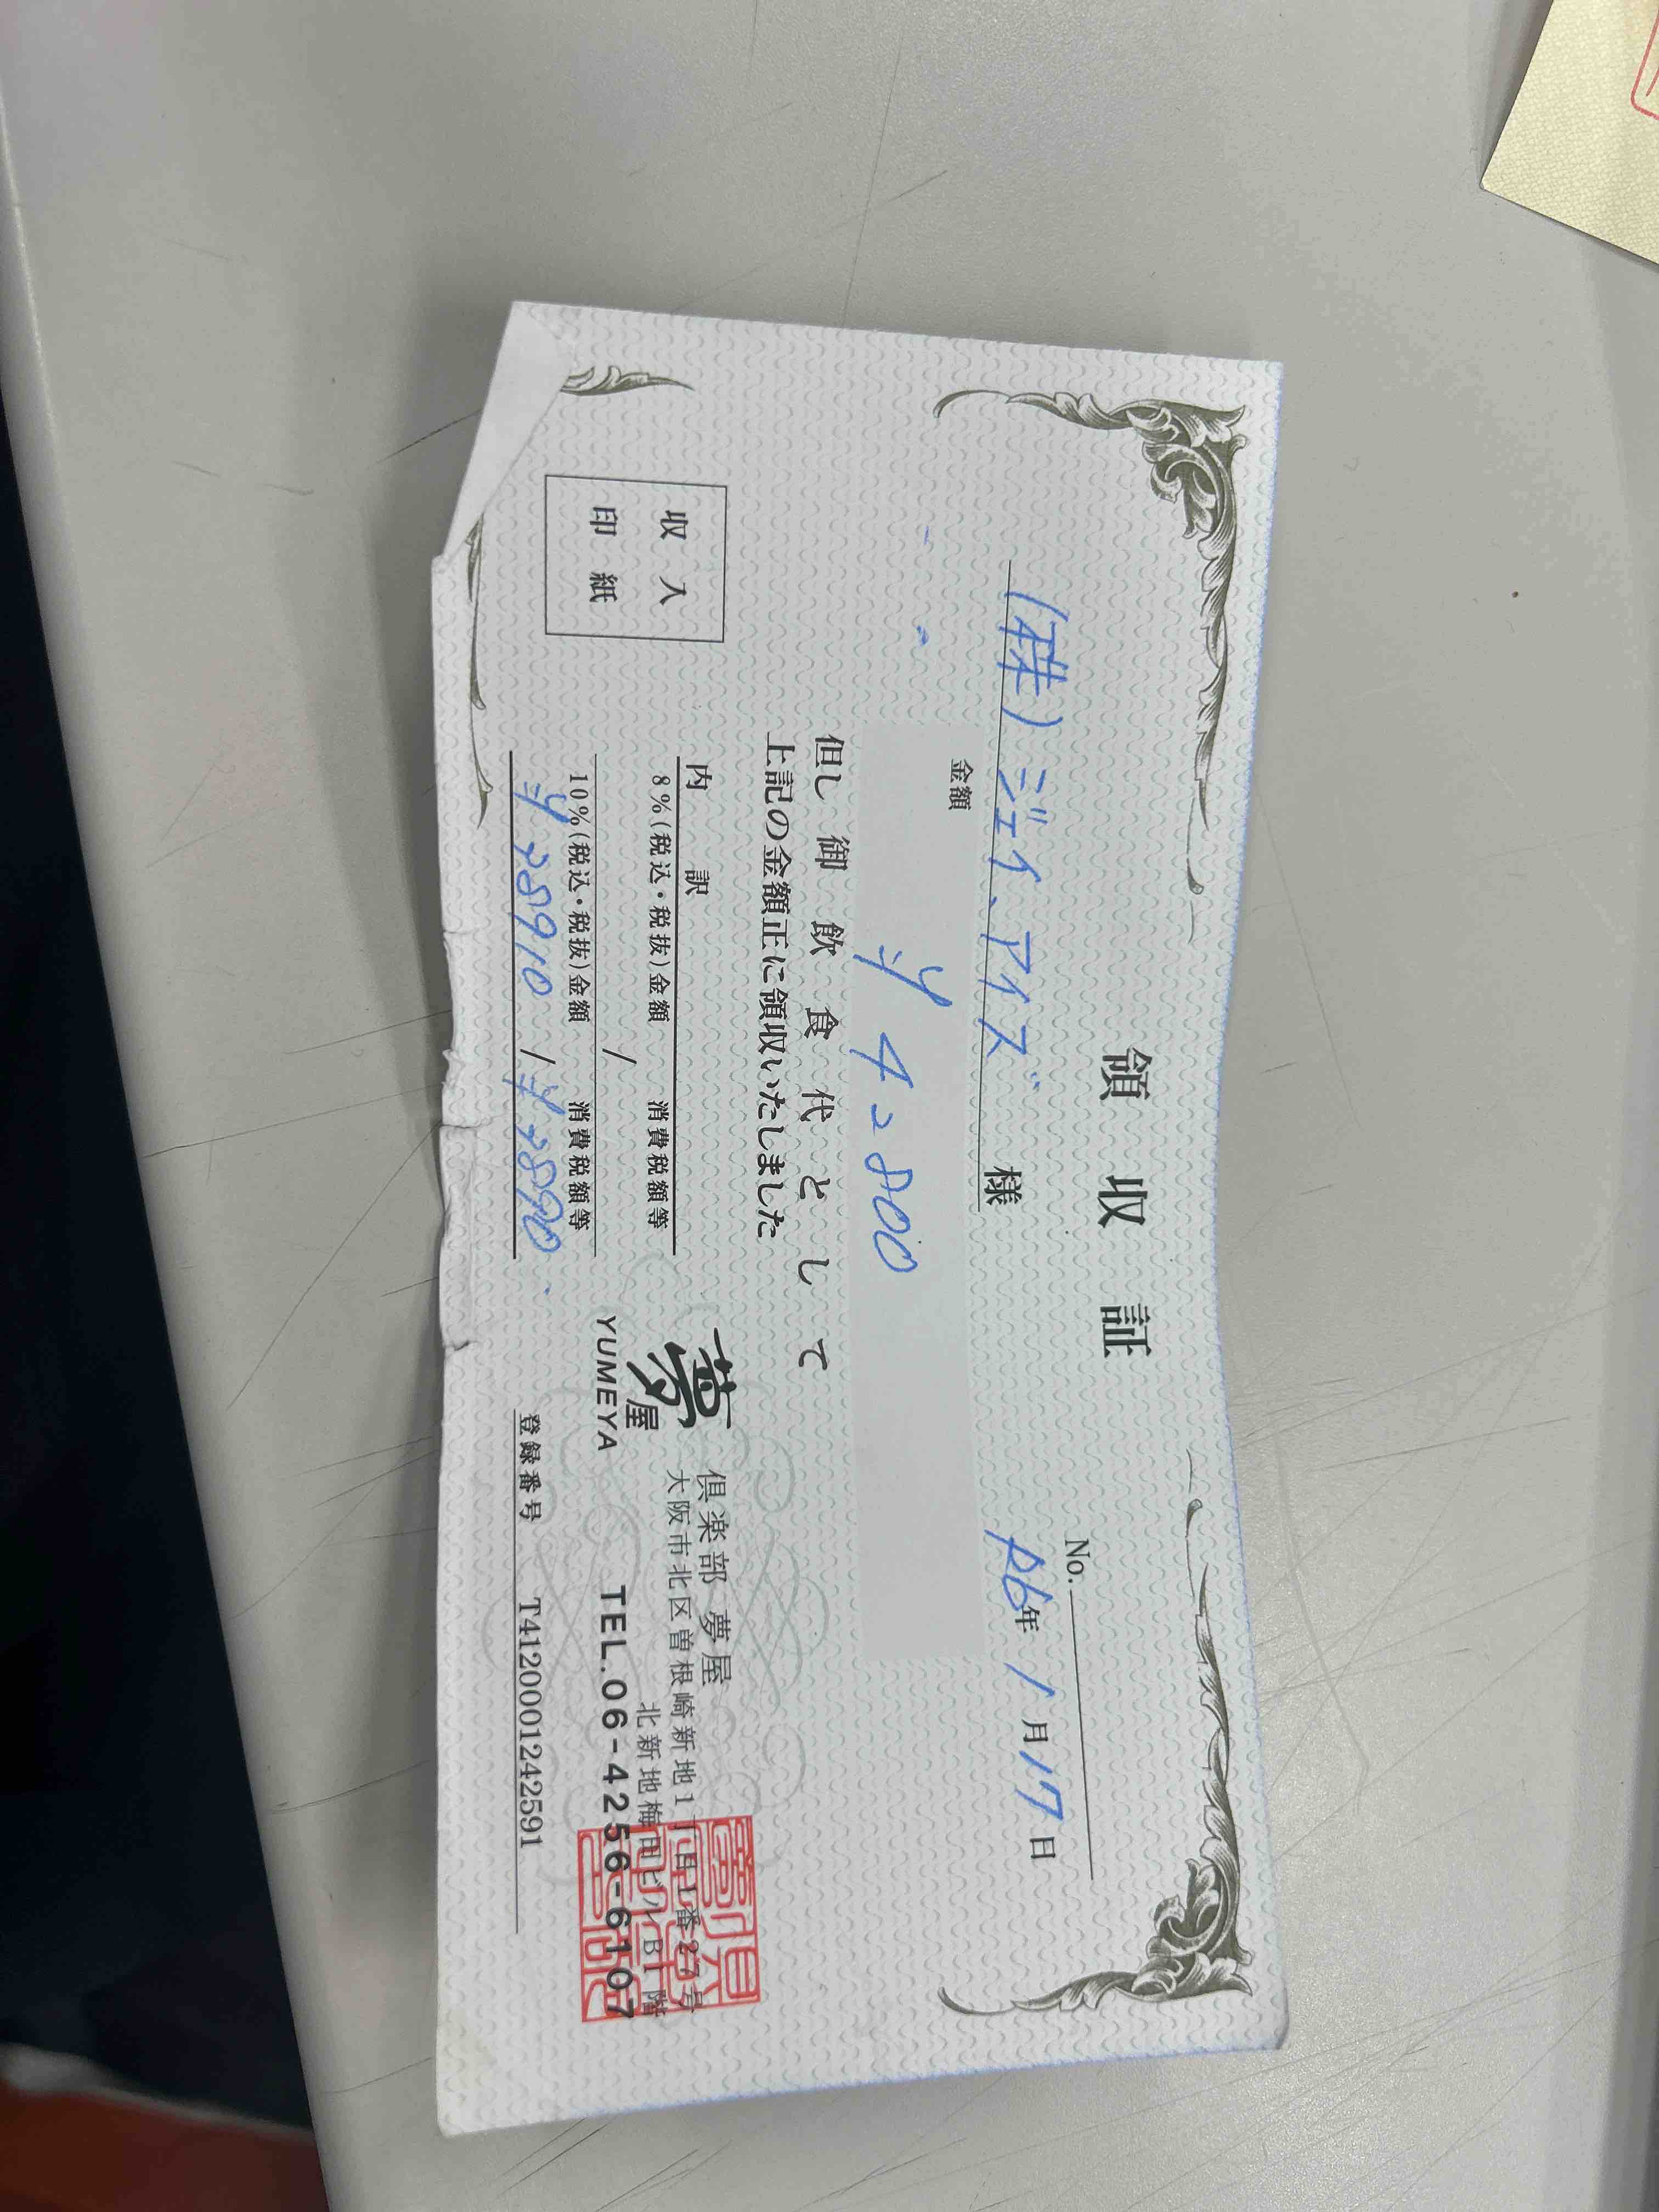 領収証
No.
(株)ジェイ、アイズ 様
R6年 1月17日
金額
¥42800
但し御飲食代として
上記の金額正に領収いたしました
収入
印紙
内訳
8%(税込・税抜)金額 / 消費税額等
10%(税込・税抜)金額 消費税額等
¥28910 / ¥2890
夢屋
YUMEYA
倶楽部 夢屋
大阪市北区曽根崎新地1丁目1番27号
北新地梅田ビルB1階
TEL.06-4256-6107
登録番号 T4120001242591